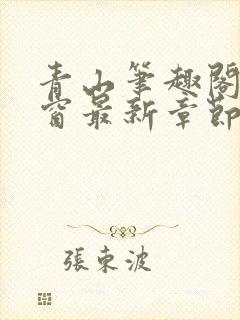 青山筆趣閣
窗最新章節
張東波